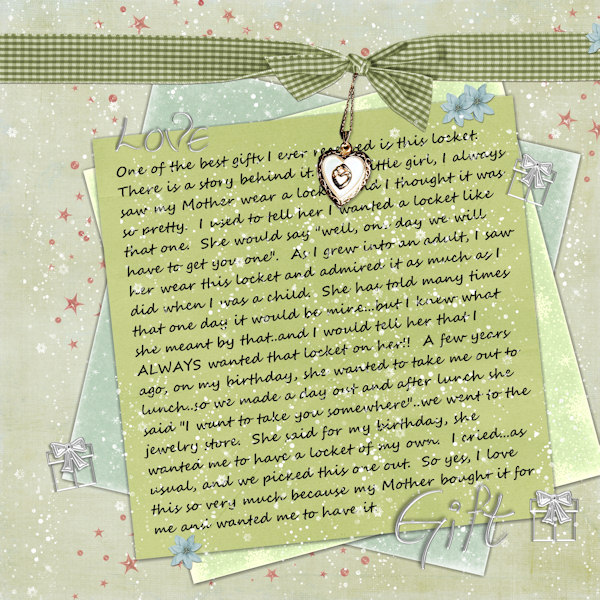 LOVE
One of the best gifts I ever received is this locket.
There is a story behind it. little girl, I always
saw my Mother wear a locket and I thought it was
so pretty. I used to tell her I wanted a locket like
that one. She would say "well, one day we will
have to get you one". As I grew into an adult, I saw
her wear this locket and admired it as much as I
did when I was a child. She has told many times
that one day it would be mine...but I knew what
she meant by that..and I would tell her that I
ALWAYS wanted that locket on her!! A few years
ago, on my birthday, she wanted to take me out to
lunch..so we made a day out and after lunch she
said "I want to take you somewhere"..we went to the
jewelry store. She said for my birthday, she
wanted me to have a locket of my own. I cried...as
usual, and we picked this one out. So yes, I love
this so very much because my Mother bought it for
me and wanted me to have it
Gift